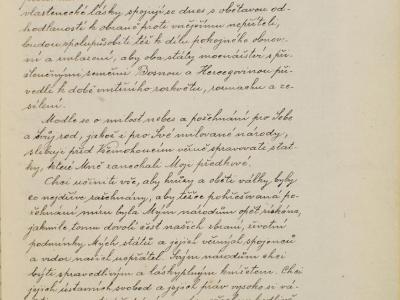 vlastenecké lásky, spojují se dnes s obětavou od-
hodlaností k obraně proti vnějšímu nepříteli,
budou spolupůsobiti též k dílu pokojného obnove-
ní a smlazení, aby oba státy mocnářství s při-
sloučenými zeměmi Bosnou a Hercegovinou při-
vedli k době vnitřního rozkvětu, rozmachu a ze-
sílení.
Modle se o milost nebes a požehnání pro Sebe
a Svůj rod, jakož i pro Své milované národy,
slibuji před Všemohoucím věrně spravovati stat-
ky, které Mně zanechali Moji předkové.
Chci učiniti vše, aby hrůzy a oběti války byly
co nejdříve zažehnány, aby těžce pohřešovaná po-
žehnání míru byla Mým národům opět získána,
jakmile tomu dovolí čest našich zbraní, životní
podmínky Mých států a jejich věrných spojenců
a vzdor našich nepřátel. Svým národům chci
býti spravedlivým a láskyplným knížetem. Chci
jejich ústavních svobod a jejich práv vysoko si vá-